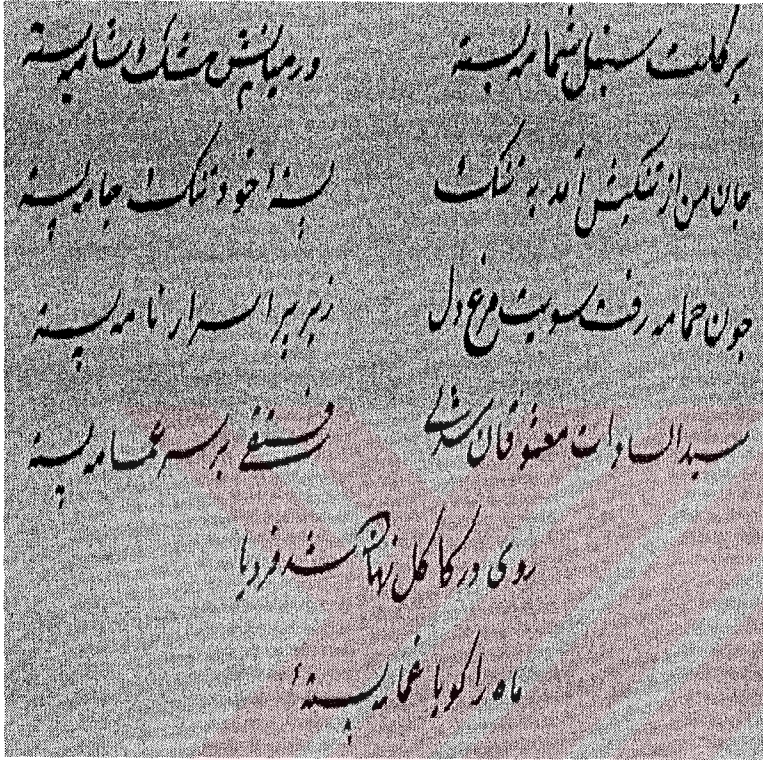 بر گلت سنبل شمامه بسته در میانش مشک شامه بسته
جان من از تنگیش آمد به تنگ بسته‌ٔ خود تنگ جامه بسته
چون حمامه رفت سویت مرغ دل زیر پر اسرار نامه بسته
سید السادات معشوقان شدی فستقی بر سر عمامه بسته
روی در کاکل نهان شد فرد یا
ماه را گویا غمامه بستهٔ